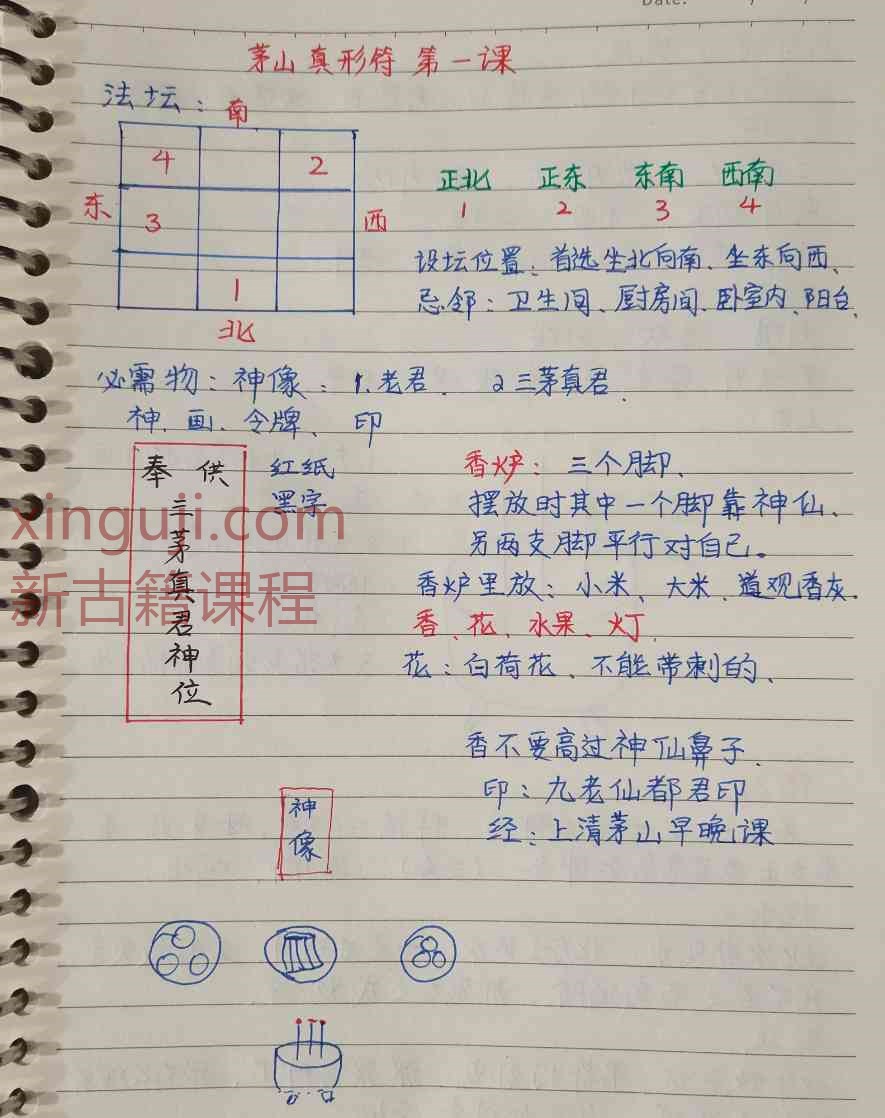 Date:
茅山真形符 第一课
法坛：
南
4 2
东 3 西
1
北
正北 正东 东南 西南
1 2 3 4
设坛位置：首选坐北向南、坐东向西、
忌邻：卫生间、厨房间、卧室内、阳台、
必需物：神像：1、老君. 2三茅真君.
神、画、令牌、印
奉供
三茅真君神位
红纸
黑字
香炉：三个脚、
摆放时其中一个脚靠神仙、
另两支脚平行对自己。
香炉里放：小米、大米、道观香灰.
香、花、水果、灯.
花：白荷花、不能带刺的、
香不要高过神仙鼻子.
印：九老仙都君印
经：上清茅山早晚课
神像
xinguji.com
新古籍课程